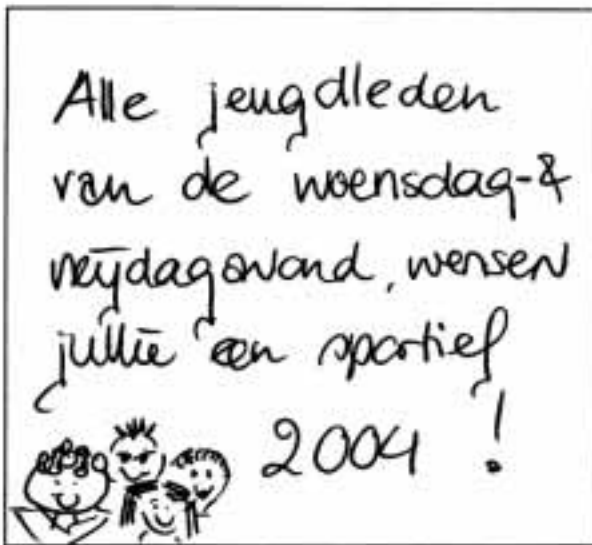 Alle jeugdleden
van de woensdag-&
vrijdagavond, wensen
jullie een sportief
2004 !